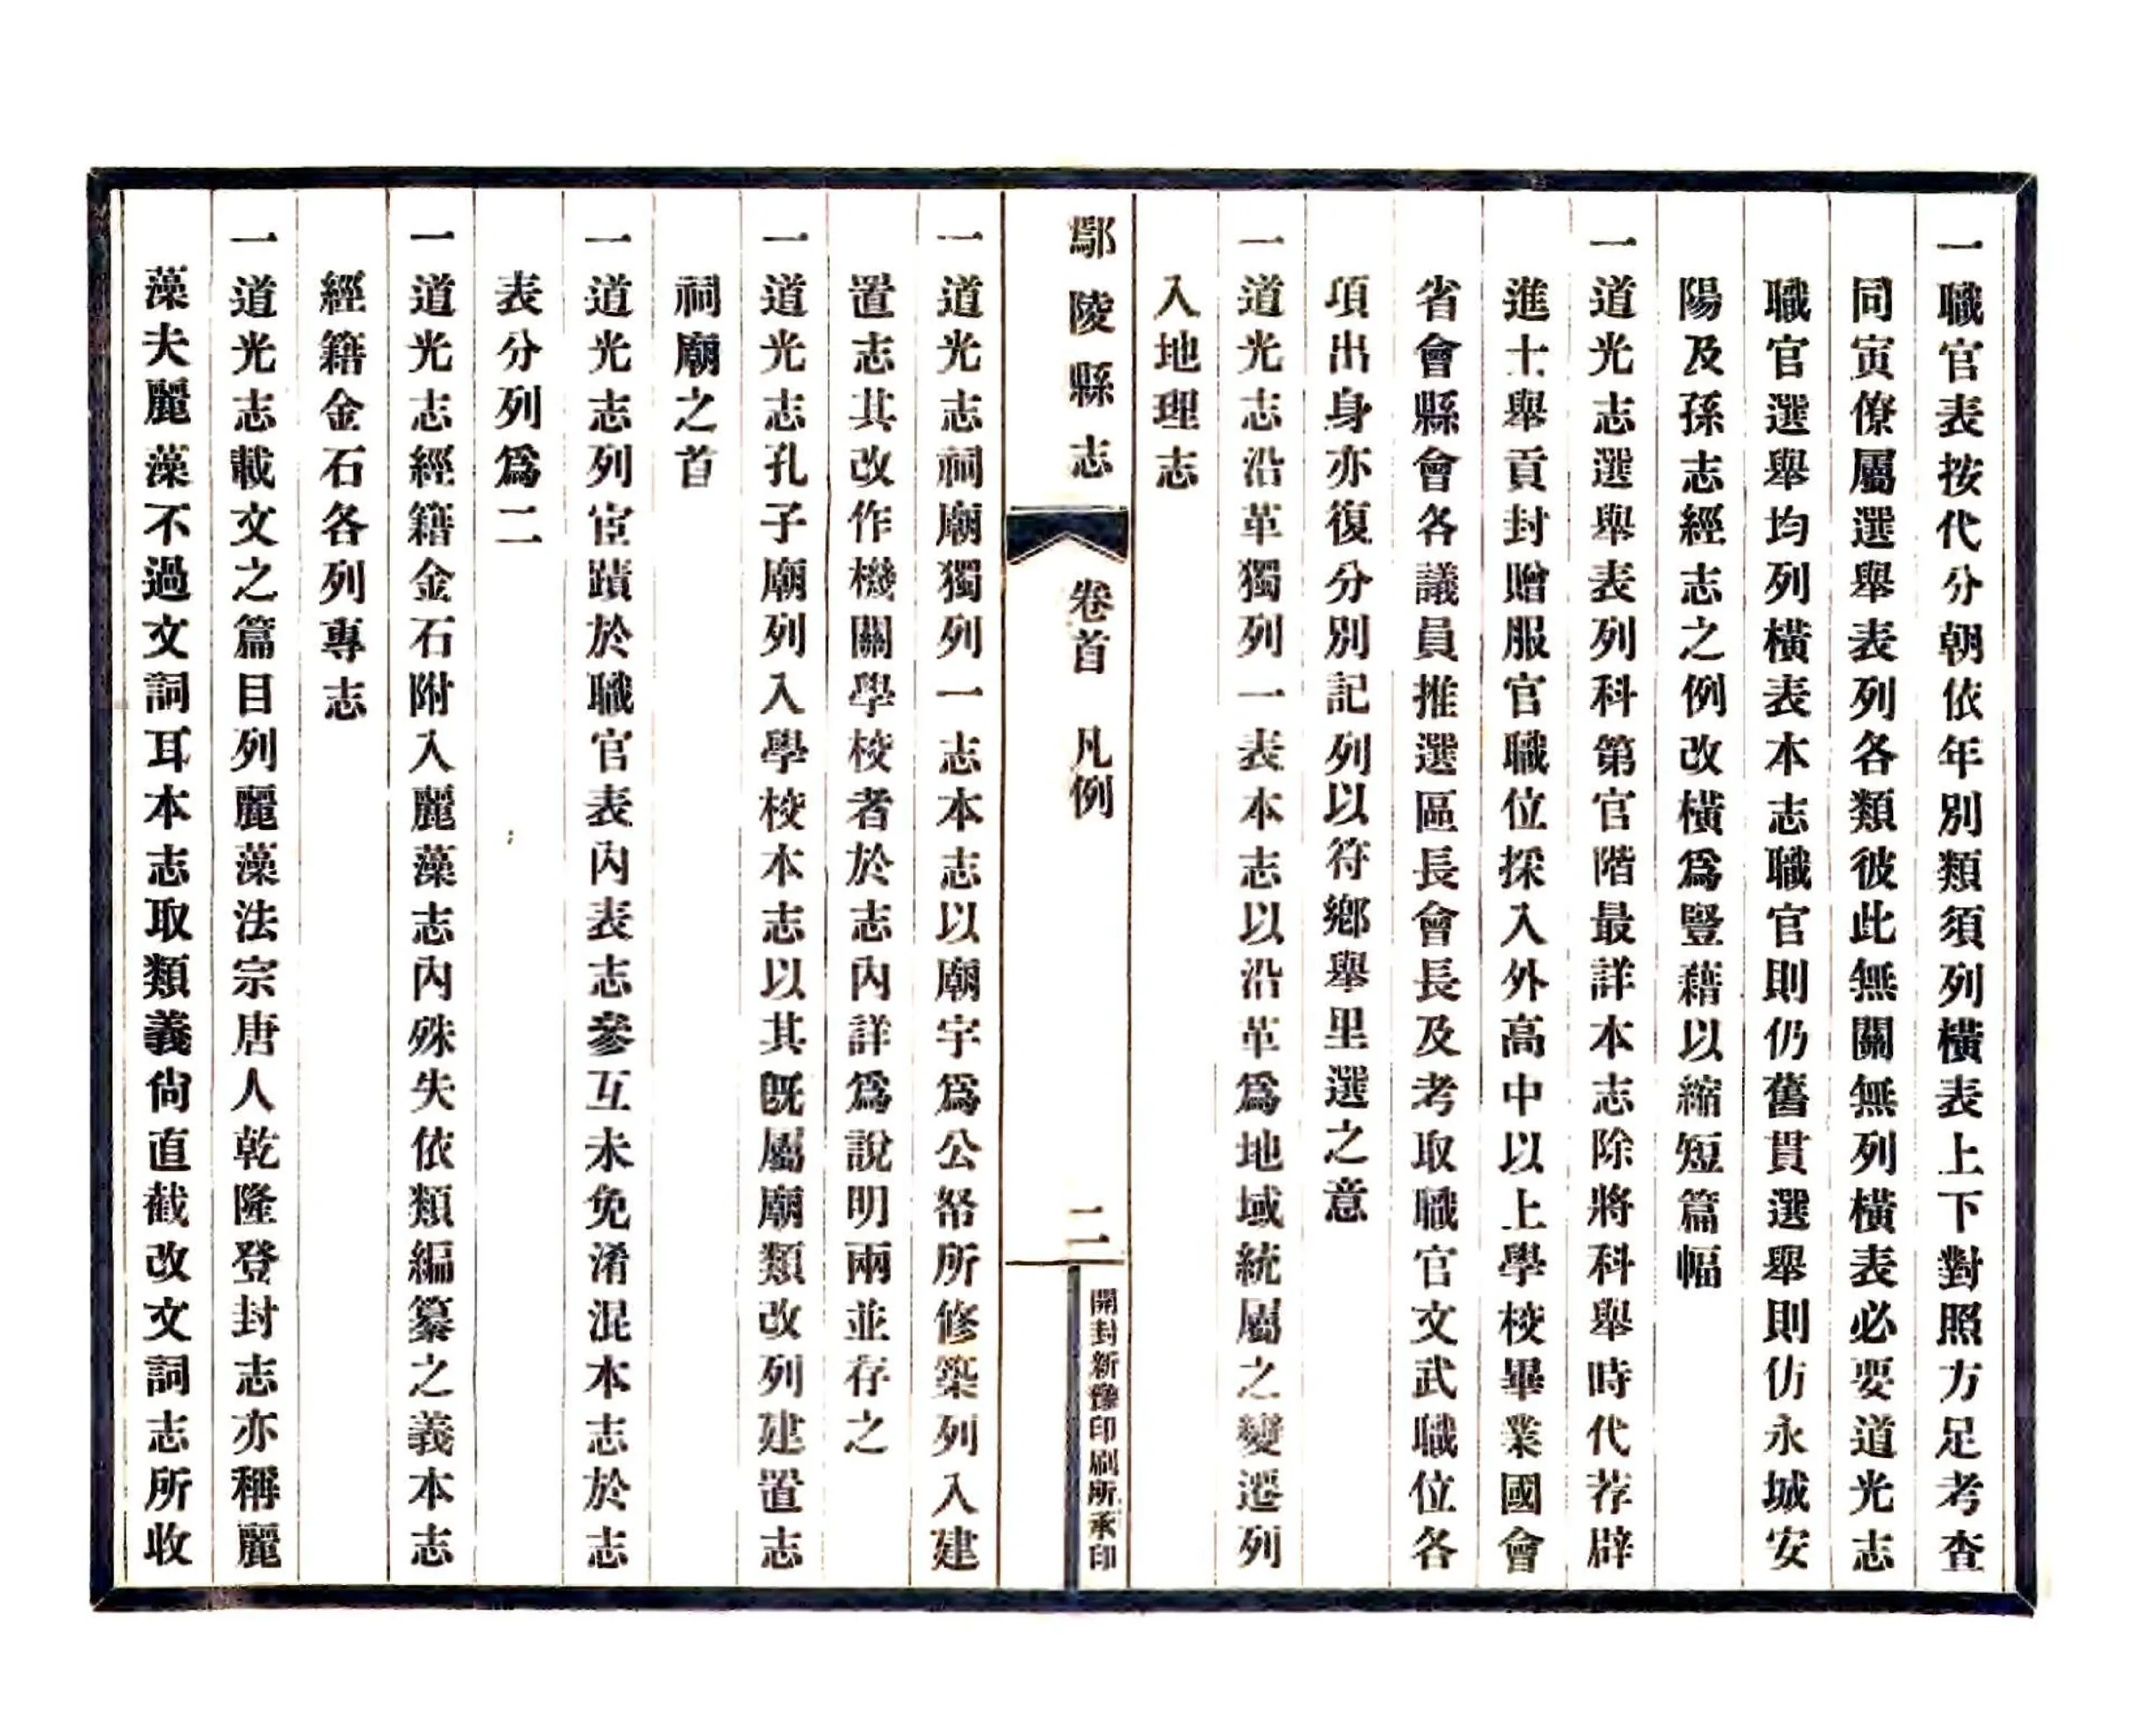 一職官表按代分朝依年別類須列橫表上下對照方足考查
同寅僚屬選舉表列各類彼此無關無列橫表必要道光志
職官選舉均列橫表本志職官則仍舊貫選舉則仿永城安
陽及孫志經志之例改橫爲豎藉以縮短篇幅
一道光志選舉表列科第官階最詳本志除將科舉時代荐辟
進士舉貢封贈服官職位採入外高中以上學校畢業國會
省會縣會各議員推選區長會長及考取職官文武職位各
項出身亦復分別記列以符鄉舉里選之意
一道光志沿革獨列一表本志以沿革爲地域統屬之變遷列
入地理志
鄢陵縣志
卷首 凡例
二
開封新豫印刷所承印
一道光志祠廟獨列一志本志以廟宇爲公帑所修築列入建
置志其改作機關學校者於志內詳爲說明兩並存之
一道光志孔子廟列入學校本志以其既屬廟類改列建置志
祠廟之首
一道光志列宦蹟於職官表內表志參互未免淆混本志於志
表分列爲二
一道光志經籍金石附入麗藻志內殊失依類編纂之義本志
經籍金石各列專志
一道光志載文之篇目列麗藻法宗唐人乾隆登封志亦稱麗
藻夫麗藻不過文詞耳本志取類義尙直截改文詞志所收